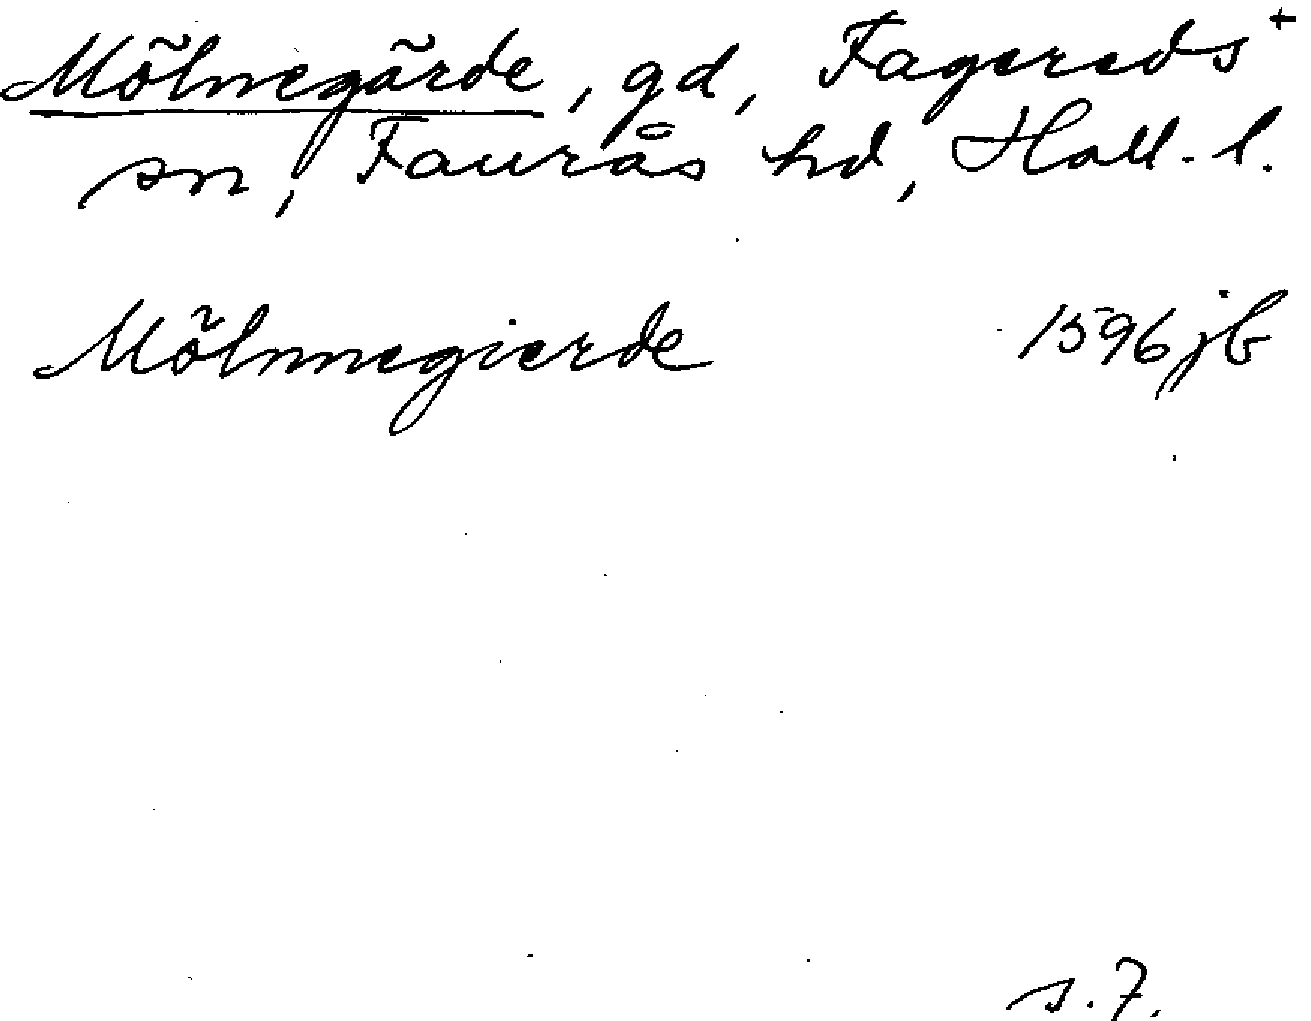 Mölnegärde, gd, Fagereds +
sn, Faurås hd, Hall. l.
Mölnnegierde 1596 jb
s. 7.